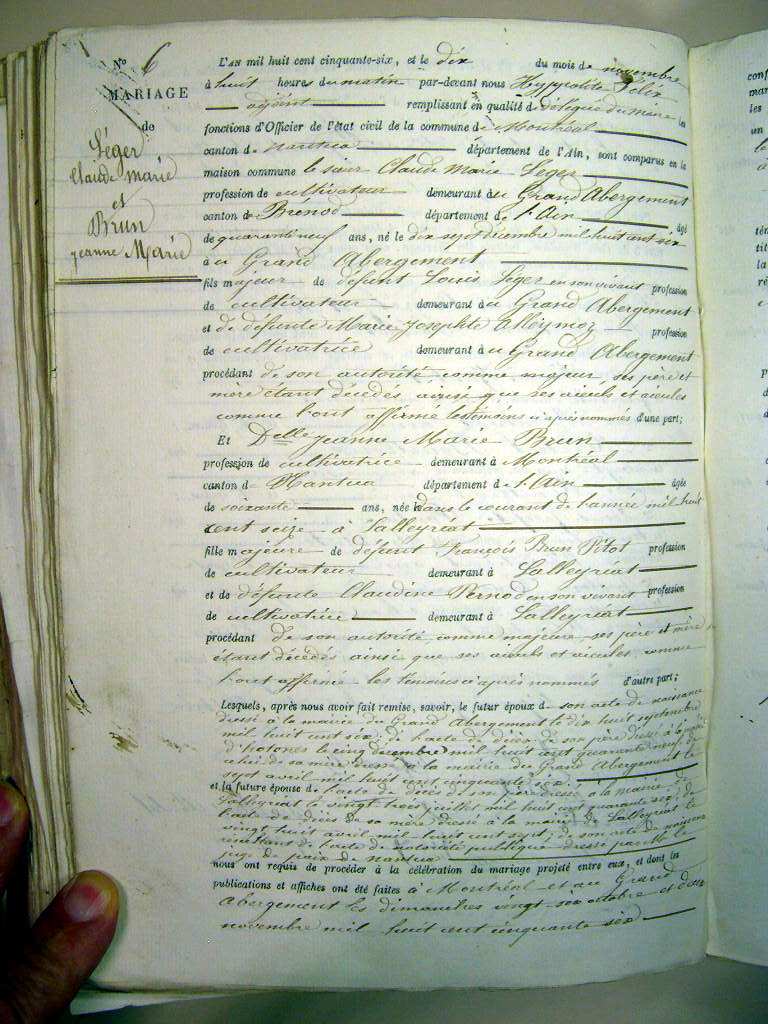 N.o 6
MARIAGE
de
Léger
Claude Marie
et
Brun
Jeanne Marie
L'AN mil huit cent cinquante-six, et le dix du mois de novembre
à huit heures du matin par-devant nous Hyppolite Félix
adjoint remplissant en qualité de délégué du maire les
fonctions d'Officier de l'état civil de la commune de Montréal
canton de Nantua département de l'Ain, sont comparus en la
maison commune le sieur Claude Marie Léger
profession de cultivateur demeurant au Grand Abergement
canton de Brénod département de l'Ain âgé
de quarante neuf ans, né le dix sept décembre mil huit cent six
à au Grand Abergement
fils majeur de défunt Louis Léger en son vivant profession
de cultivateur demeurant à au Grand Abergement
et de défunte Marie Josephte Alleymoz profession
de cultivatrice demeurant à au Grand Abergement
procédant de son autorité comme majeur, ses père et
mère étant décédés ainsi que ses aïeuls et aïeules
comme l'ont affirmé les témoins ci après nommés d'une part;
Et Delle Jeanne Marie Brun
profession de cultivatrice demeurant à Montréal
canton de Nantua département de l'Ain âgée
de soixante ans, née le dans le courant de l'année mil huit
cent seize à Lalleyriat
fille majeure de défunt François Brun Pitot profession
de cultivateur demeurant à Lalleyriat
et de défunte Claudine Pernod en son vivant profession
de cultivatrice demeurant à Lalleyriat
procédant de son autorité comme majeure ses père et mère
étant décédés ainsi que ses aïeuls et aïeules, comme
l'ont affirmé les témoins ci après nommés d'autre part;
Lesquels, après nous avoir fait remise, savoir, le futur époux de son acte de naissance
dressé à la mairie du Grand Abergement le dix huit septembre
mil huit cent six; de l'acte de décès de son père dressé à la mairie
d'hotones le cinq décembre mil huit cent quarante neuf, de
celui de sa mère dressé à la mairie du Grand Abergement le
sept avril mil huit cent cinquante six.
et la future épouse de l'acte de décès de son père dressé à la mairie de
Lalleyriat le vingt trois juillet mil huit cent quarante six; de
l'acte de décès de sa mère dressé à la mairie de Lalleyriat le
vingt huit avril mil huit cent sept; de son acte de naissance
résultant de l'acte de notoriété publique dressé par le
juge de paix de Nantua
nous ont requis de procéder à la célébration du mariage projeté entre eux, et dont les
publications et affiches ont été faites à Montréal et au Grand
Abergement les dimanches vingt-six octobre et deux
novembre mil huit cent cinquante six